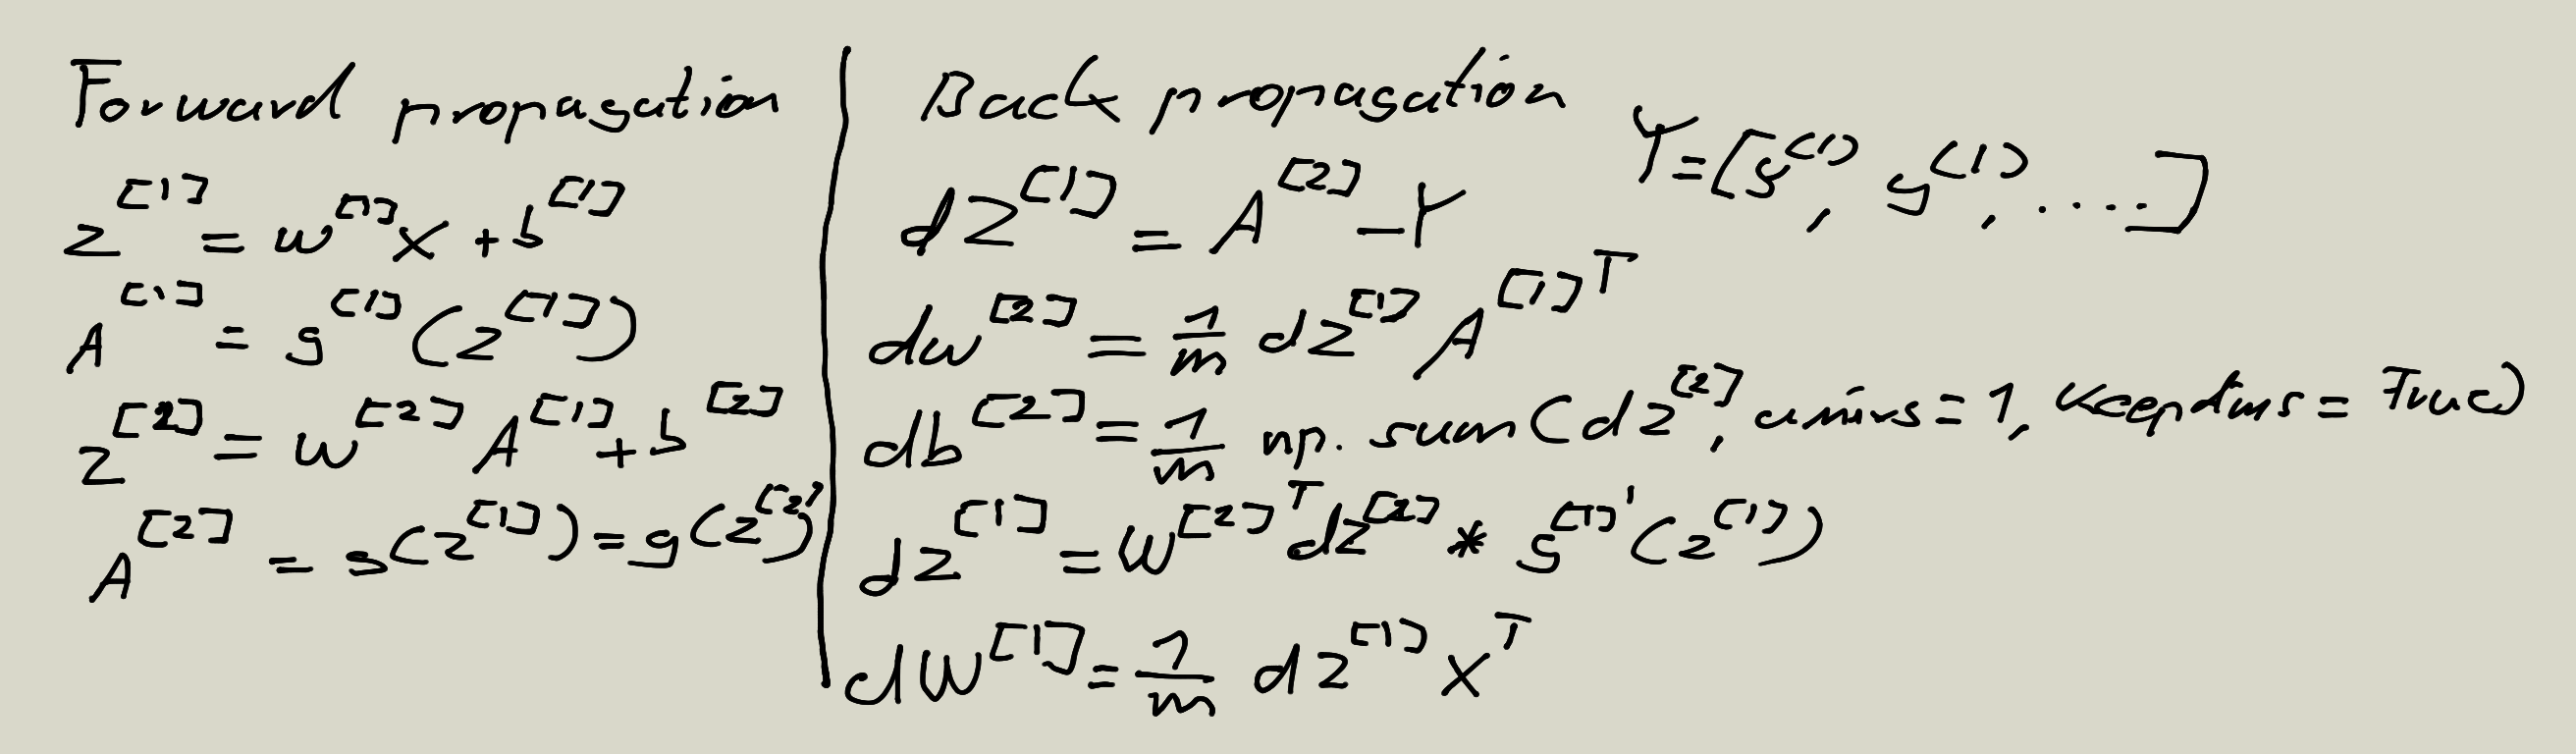 Forward propagation
z^[1] = w^[1] x + b^[1]
A^[1] = g^[1] (z^[1])
z^[2] = w^[2] A^[1] + b^[2]
A^[2] = g(z^[1]) = g(z^[2])
Back propagation
Y = [y^(1), y^(1), ....]
dZ^[1] = A^[2] - Y
dw^[2] = 1/m dz^[1] A^[1]T
db^[2] = 1/m np.sum(dz^[2], keepdims = True)
dz^[1] = W^[2]T dz^[2] * g^[1]' (z^[1])
dW^[1] = 1/m dz^[1] x^T